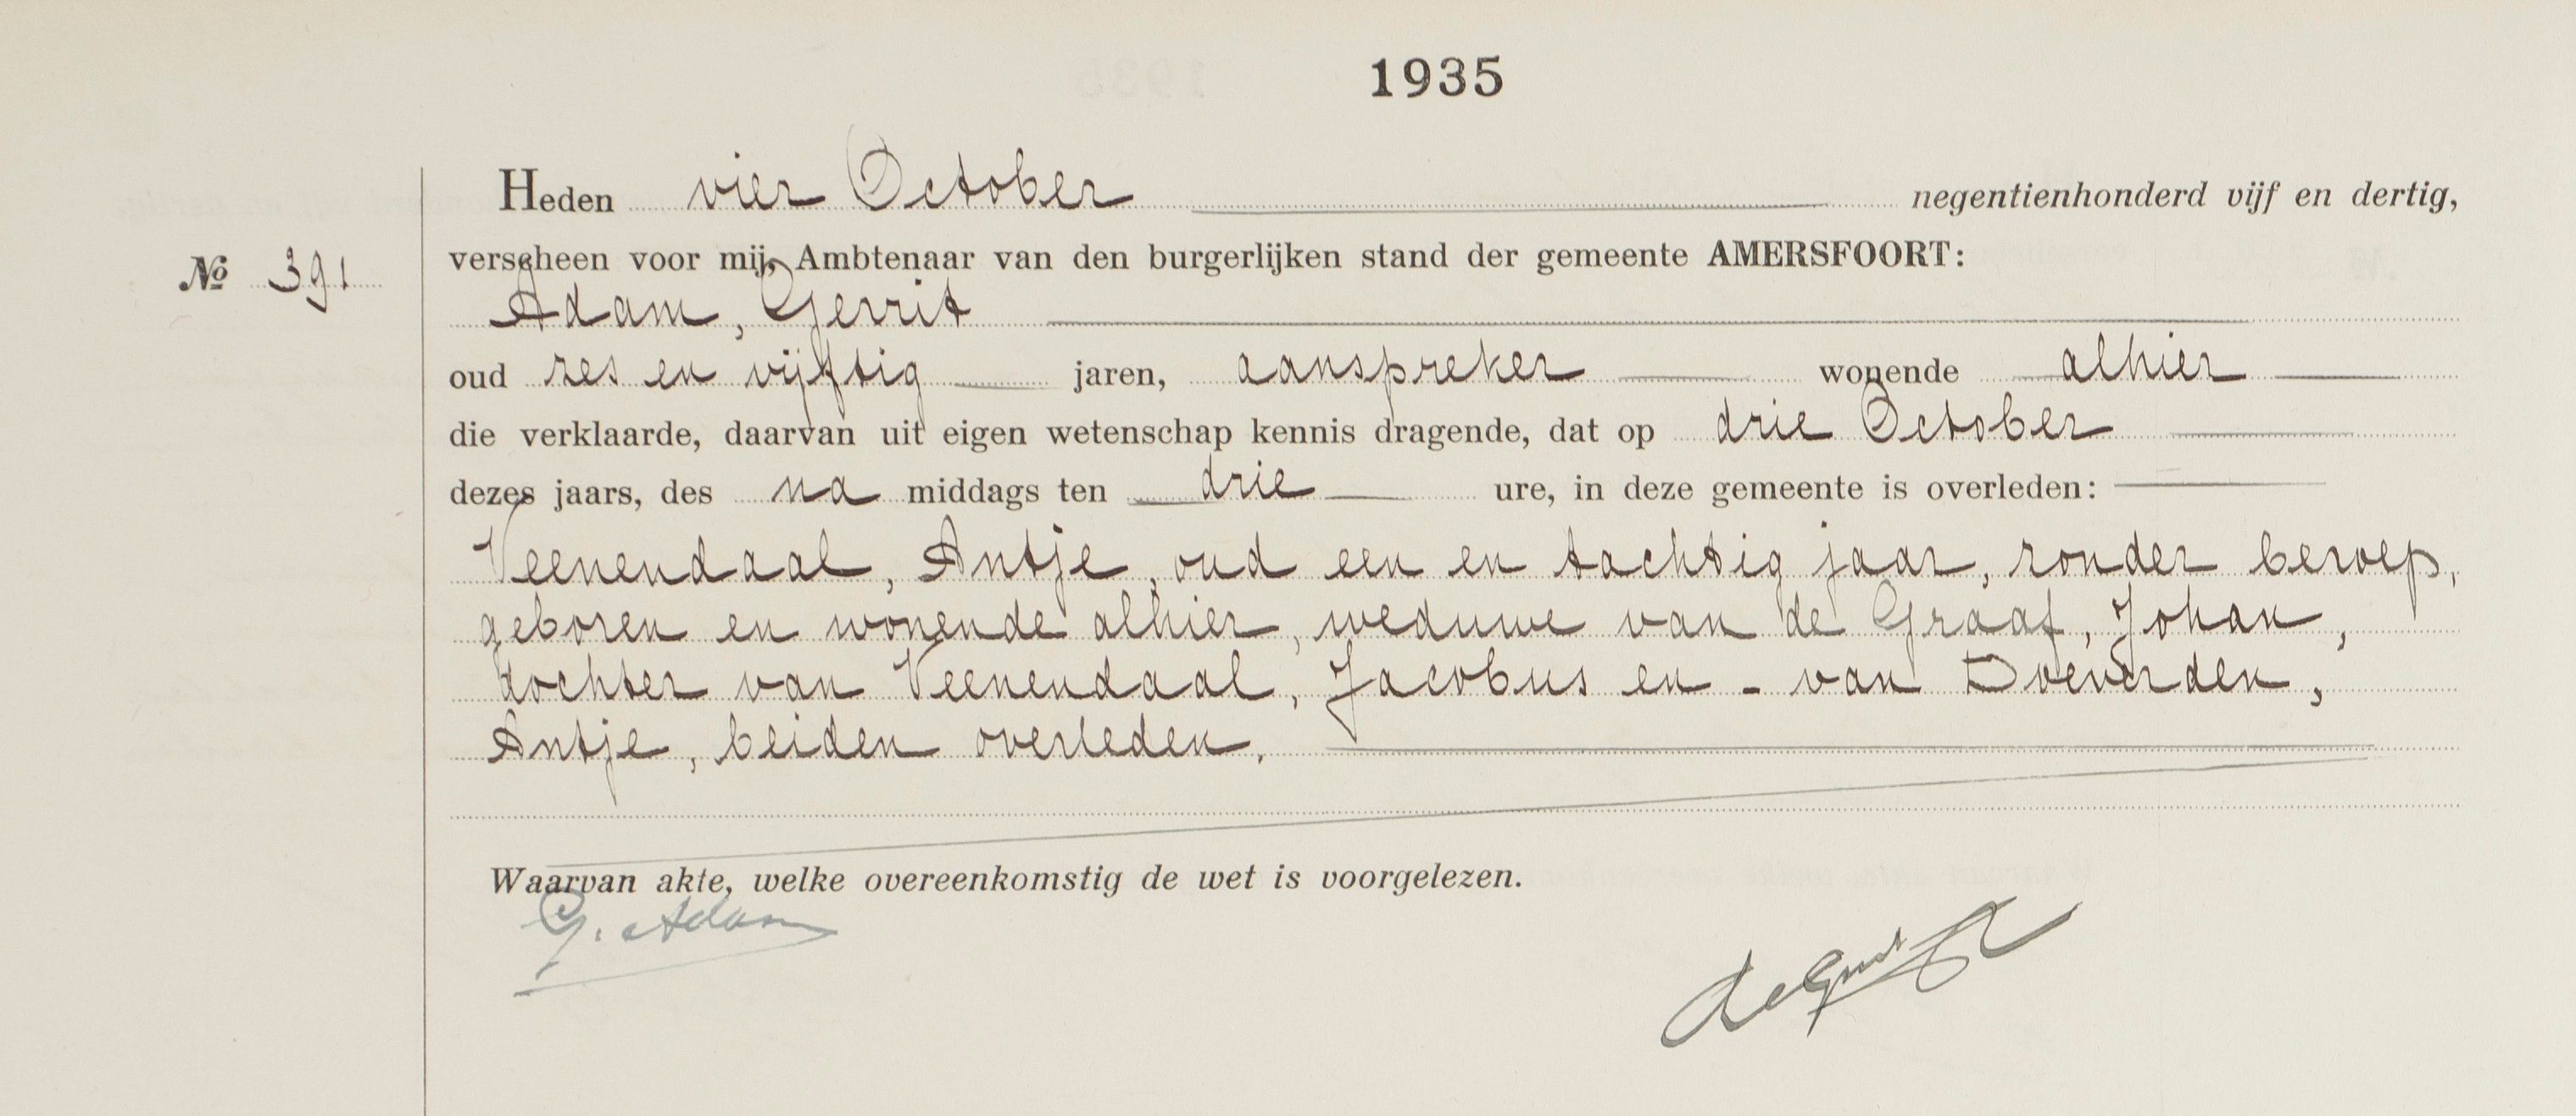 1935
Heden vier October negentienhonderd vijf en dertig,
verscheen voor mij, Ambtenaar van den burgerlijken stand der gemeente AMERSFOORT:
No 391
Adam, Gerrit
oud zes en vijftig jaren, aanspreker wonende alhier
die verklaarde, daarvan uit eigen wetenschap kennis dragende, dat op drie October
dezes jaars, des na middags ten drie ure, in deze gemeente is overleden:
Veenendaal, Antje, oud een en tachtig jaar, zonder beroep,
geboren en wonende alhier, weduwe van de Graaf, Johan,
dochter van Veenendaal, Jacobus en - van Doeverden,
Antje, beiden overleden.
Waarvan akte, welke overeenkomstig de wet is voorgelezen.
G. Adam